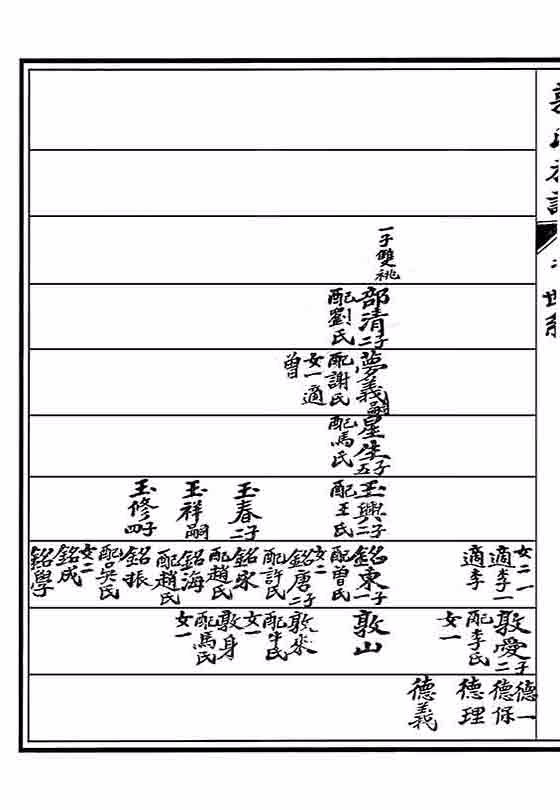 世系
一子雙祧
部清二子
配劉氏
夢義嗣
配謝氏
女一適
曾
星生五子
配馬氏
玉興二子
配王氏
玉春二子
玉祥嗣
玉修四子
女二一
適李一
適李
銘東一子
配曾氏
女二
銘唐二子
配許氏
銘宋
配趙氏
銘海
配趙氏
銘振
配吳氏
女二
銘成
銘學
敦愛二子
配李氏
女一
敦山
敦來
配牛氏
女一
敦身
配馬氏
女一
德一
德保
德理
德義